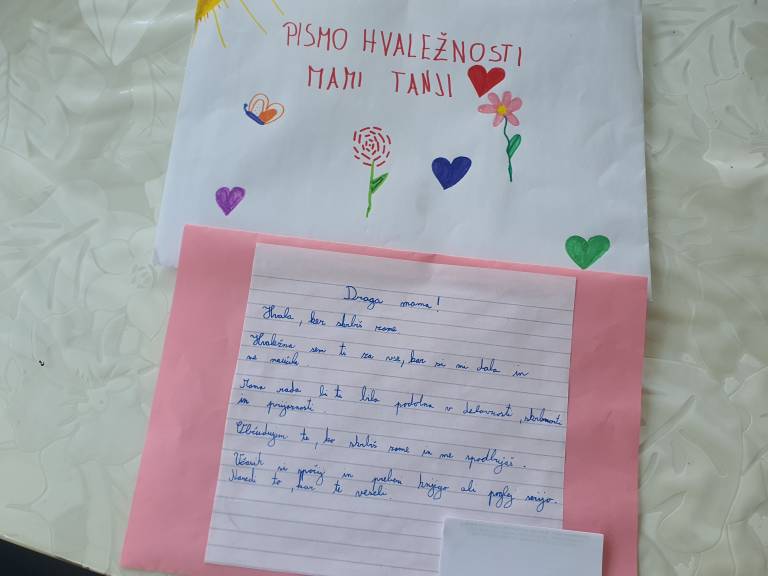 PISMO HVALEŽNOSTI
MAMI TANJI
Draga mama!
Hvala, ker skrbiš zame
Hvaležna sem ti za vse, kar si mi dala in
me naučila.
Zona rada bi ti bila podobna v delavnosti, skrbnosti
in prijaznosti.
Občudujem te, ko skrbiš zame in me spodbujaš.
Včasih si spočij in preberi knjigo ali poglej serijo.
Naredi to, kar te veseli.